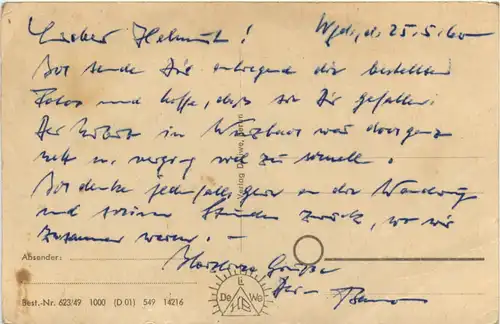 Lieber Helmut! Wgd., d. 25.5.60
Ich sende Dir anliegend die bestellten
Fotos und hoffe, daß sie Dir gefallen.
Der Urlaub in war doch ganz
nett u. verging viel zu schnell.
Ich denke jedenfalls gern an die Wanderung
und schönen Stunden zurück, wo wir
zusammen waren. –
Herzliche Grüße
Dein
Absender:
Best.-Nr. 623/49 1000 (D 01) 549 14216
Li
De We
Verlag